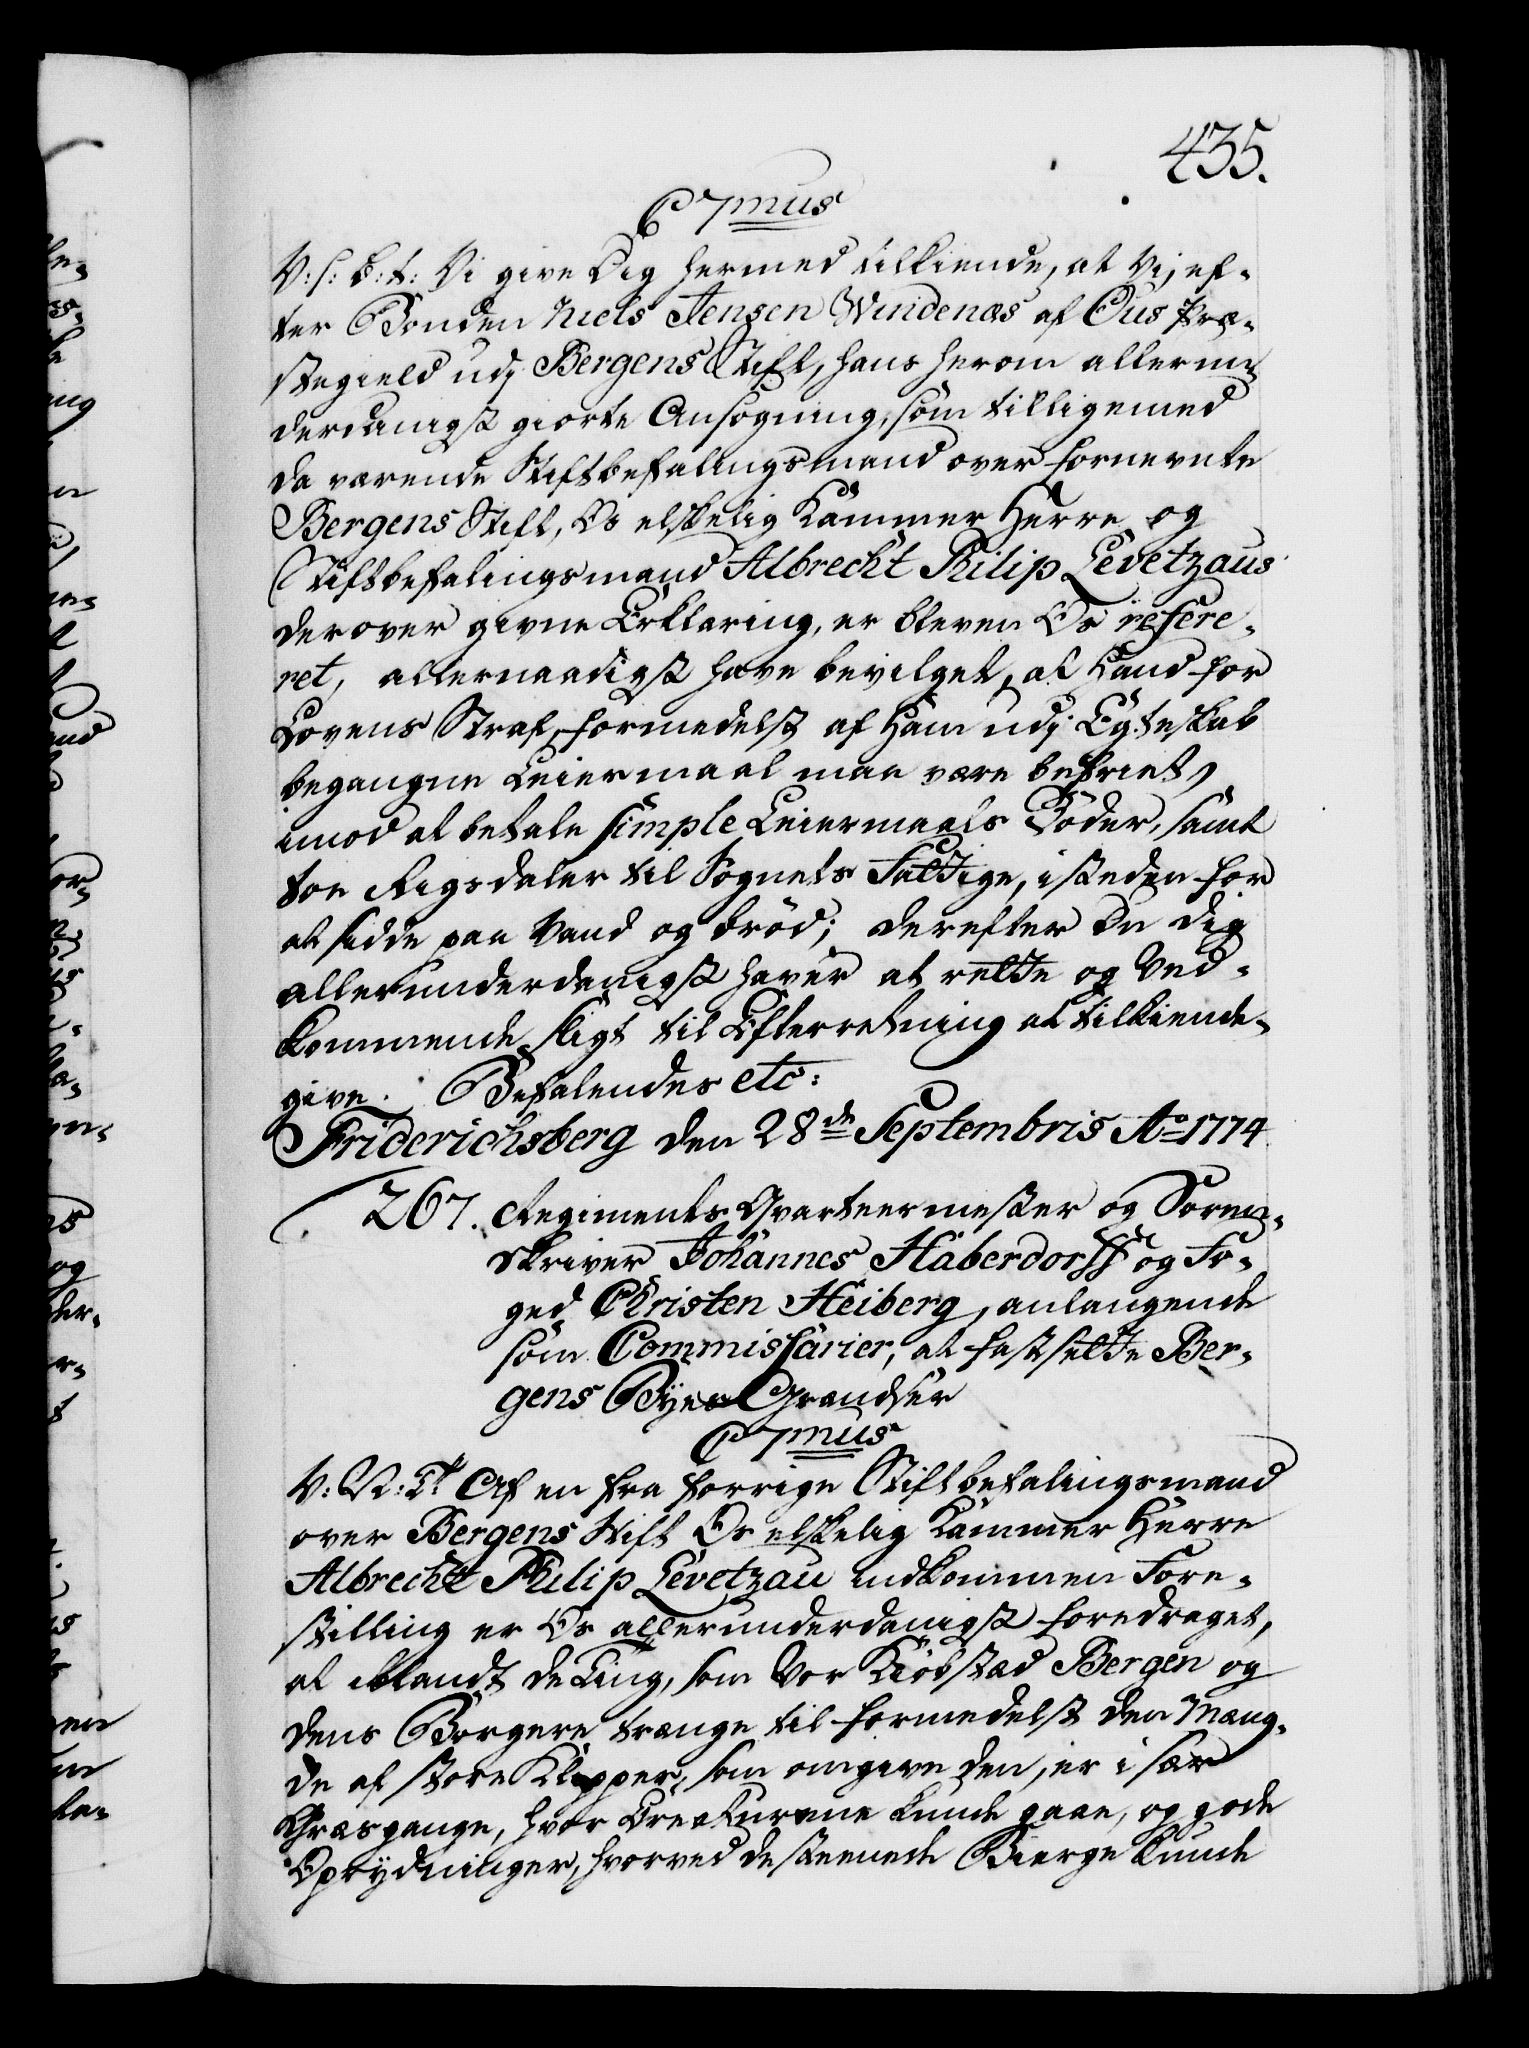 435.
C 7mus
V: s: B: t: Vi give Dig hermed tilkiende, at Vi, ef-
ter Bonden Niels Jensen Windenæs af Ous Præ-
stegield udj Bergens Stift, hans herom allerun-
derdanigst giorte Ansøgning, som tilligemed
da værende Stiftbefalingsmand over fornevnte
Bergens Stift, Os elskelig Kammer Herre og
Stiftbefalingsmand Albrecht Philip Levetzaus
derover givne Erklæring, er bleven Os refere-
ret, allernaadigst have bevilget, at Hand for
Lovens Straf, formedelst af Ham udj Egteskab
begangne Leiermaal maa være befriet,
imod at betale simple Leiermaals Bøder, samt
toe Rigsdaler til Sognets Fattige, i steden for
at sidde paa Vand og Brød; derefter Du dig
allerunderdanigst haver at rette og Ved-
kommende sligt til Efterretning at tilkiende-
give. Befalendes etc:
Friderichsberg den 28de Septembris Ao 1774
267. Regiments Qvarteermester og Soren-
skriver Johannes Haberdorff og Fo-
ged Christen Heiberg, anlangende
som Commissarier, at fastsette Ber-
gens Byes Grændser
C 7mus
V: G: T: Af en fra forrige Stiftbefalingsmand
over Bergens Stift Os elskelig Kammer Herre
Albrecht Philip Levetzau indkommen Fore-
stilling er Os allerunderdanigst foredraget,
at iblandt de Ting, som Vor Kiøbstad Bergen og
dens Borgere trænge til formedelst den Mæng-
de af store Klipper, som omgive den, er i sær
Græsgange, hvor Creaturene kunde gaae, og gode
Oprydninger, hvorved de steenede Bierge kunde